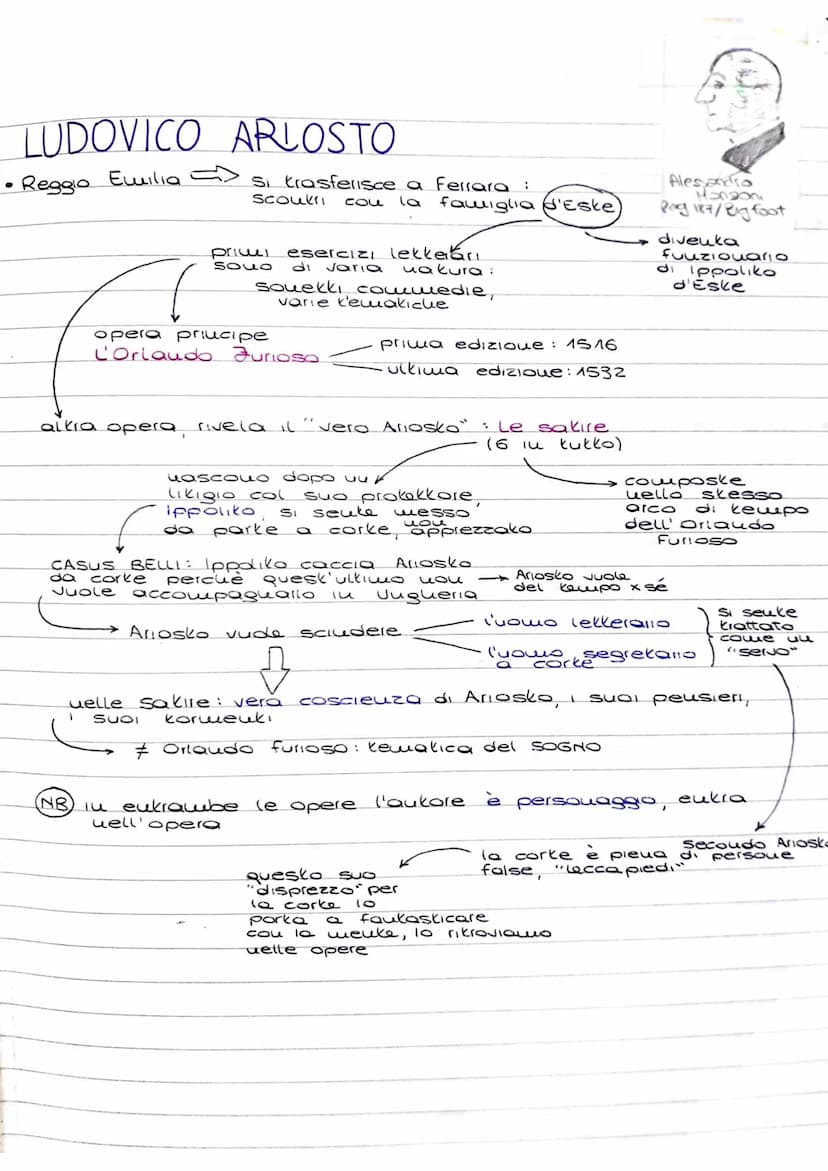 LUDOVICO ARIOSTO
• Reggio Emilia ⇒ si trasferisce a Ferrara :
scontri con la famiglia d'Este
Alessandro
Manzoni
Pag 187/Bigfoot
diventa
funzionario
di Ippolito
d'Este
primi esercizi letterari
sono di varia natura :
sonetti commedie,
varie tematiche
opera principe
L'Orlando Furioso
prima edizione : 1516
ultima edizione : 1532
altra opera, rivela il "vero Ariosto" : Le satire
(6 in tutto)
nascono dopo un
litigio col suo protettore,
Ippolito, si sente messo
da parte a corte, non apprezzato
composte
nello stesso
arco di tempo
dell'Orlando
Furioso
CASUS BELLI : Ippolito caccia Ariosto
da corte perchè quest'ultimo non
vuole accompagnarlo in Ungheria
→ Ariosto vuole
del tempo x sé
Ariosto vuole scindere
l'uomo letterario
l'uomo segretario
a corte
si sente
trattato
come un
"servo"
nelle satire : vera coscienza di Ariosto, i suoi pensieri,
i suoi tormenti
≠ Orlando furioso : tematica del SOGNO
NB in entrambe le opere l'autore è personaggio, entra
nell'opera
secondo Ariosto
la corte è piena di persone
false, "leccapiedi"
questo suo
"disprezzo" per
la corte lo
porta a fantasticare
con la mente, lo ritroviamo
nelle opere